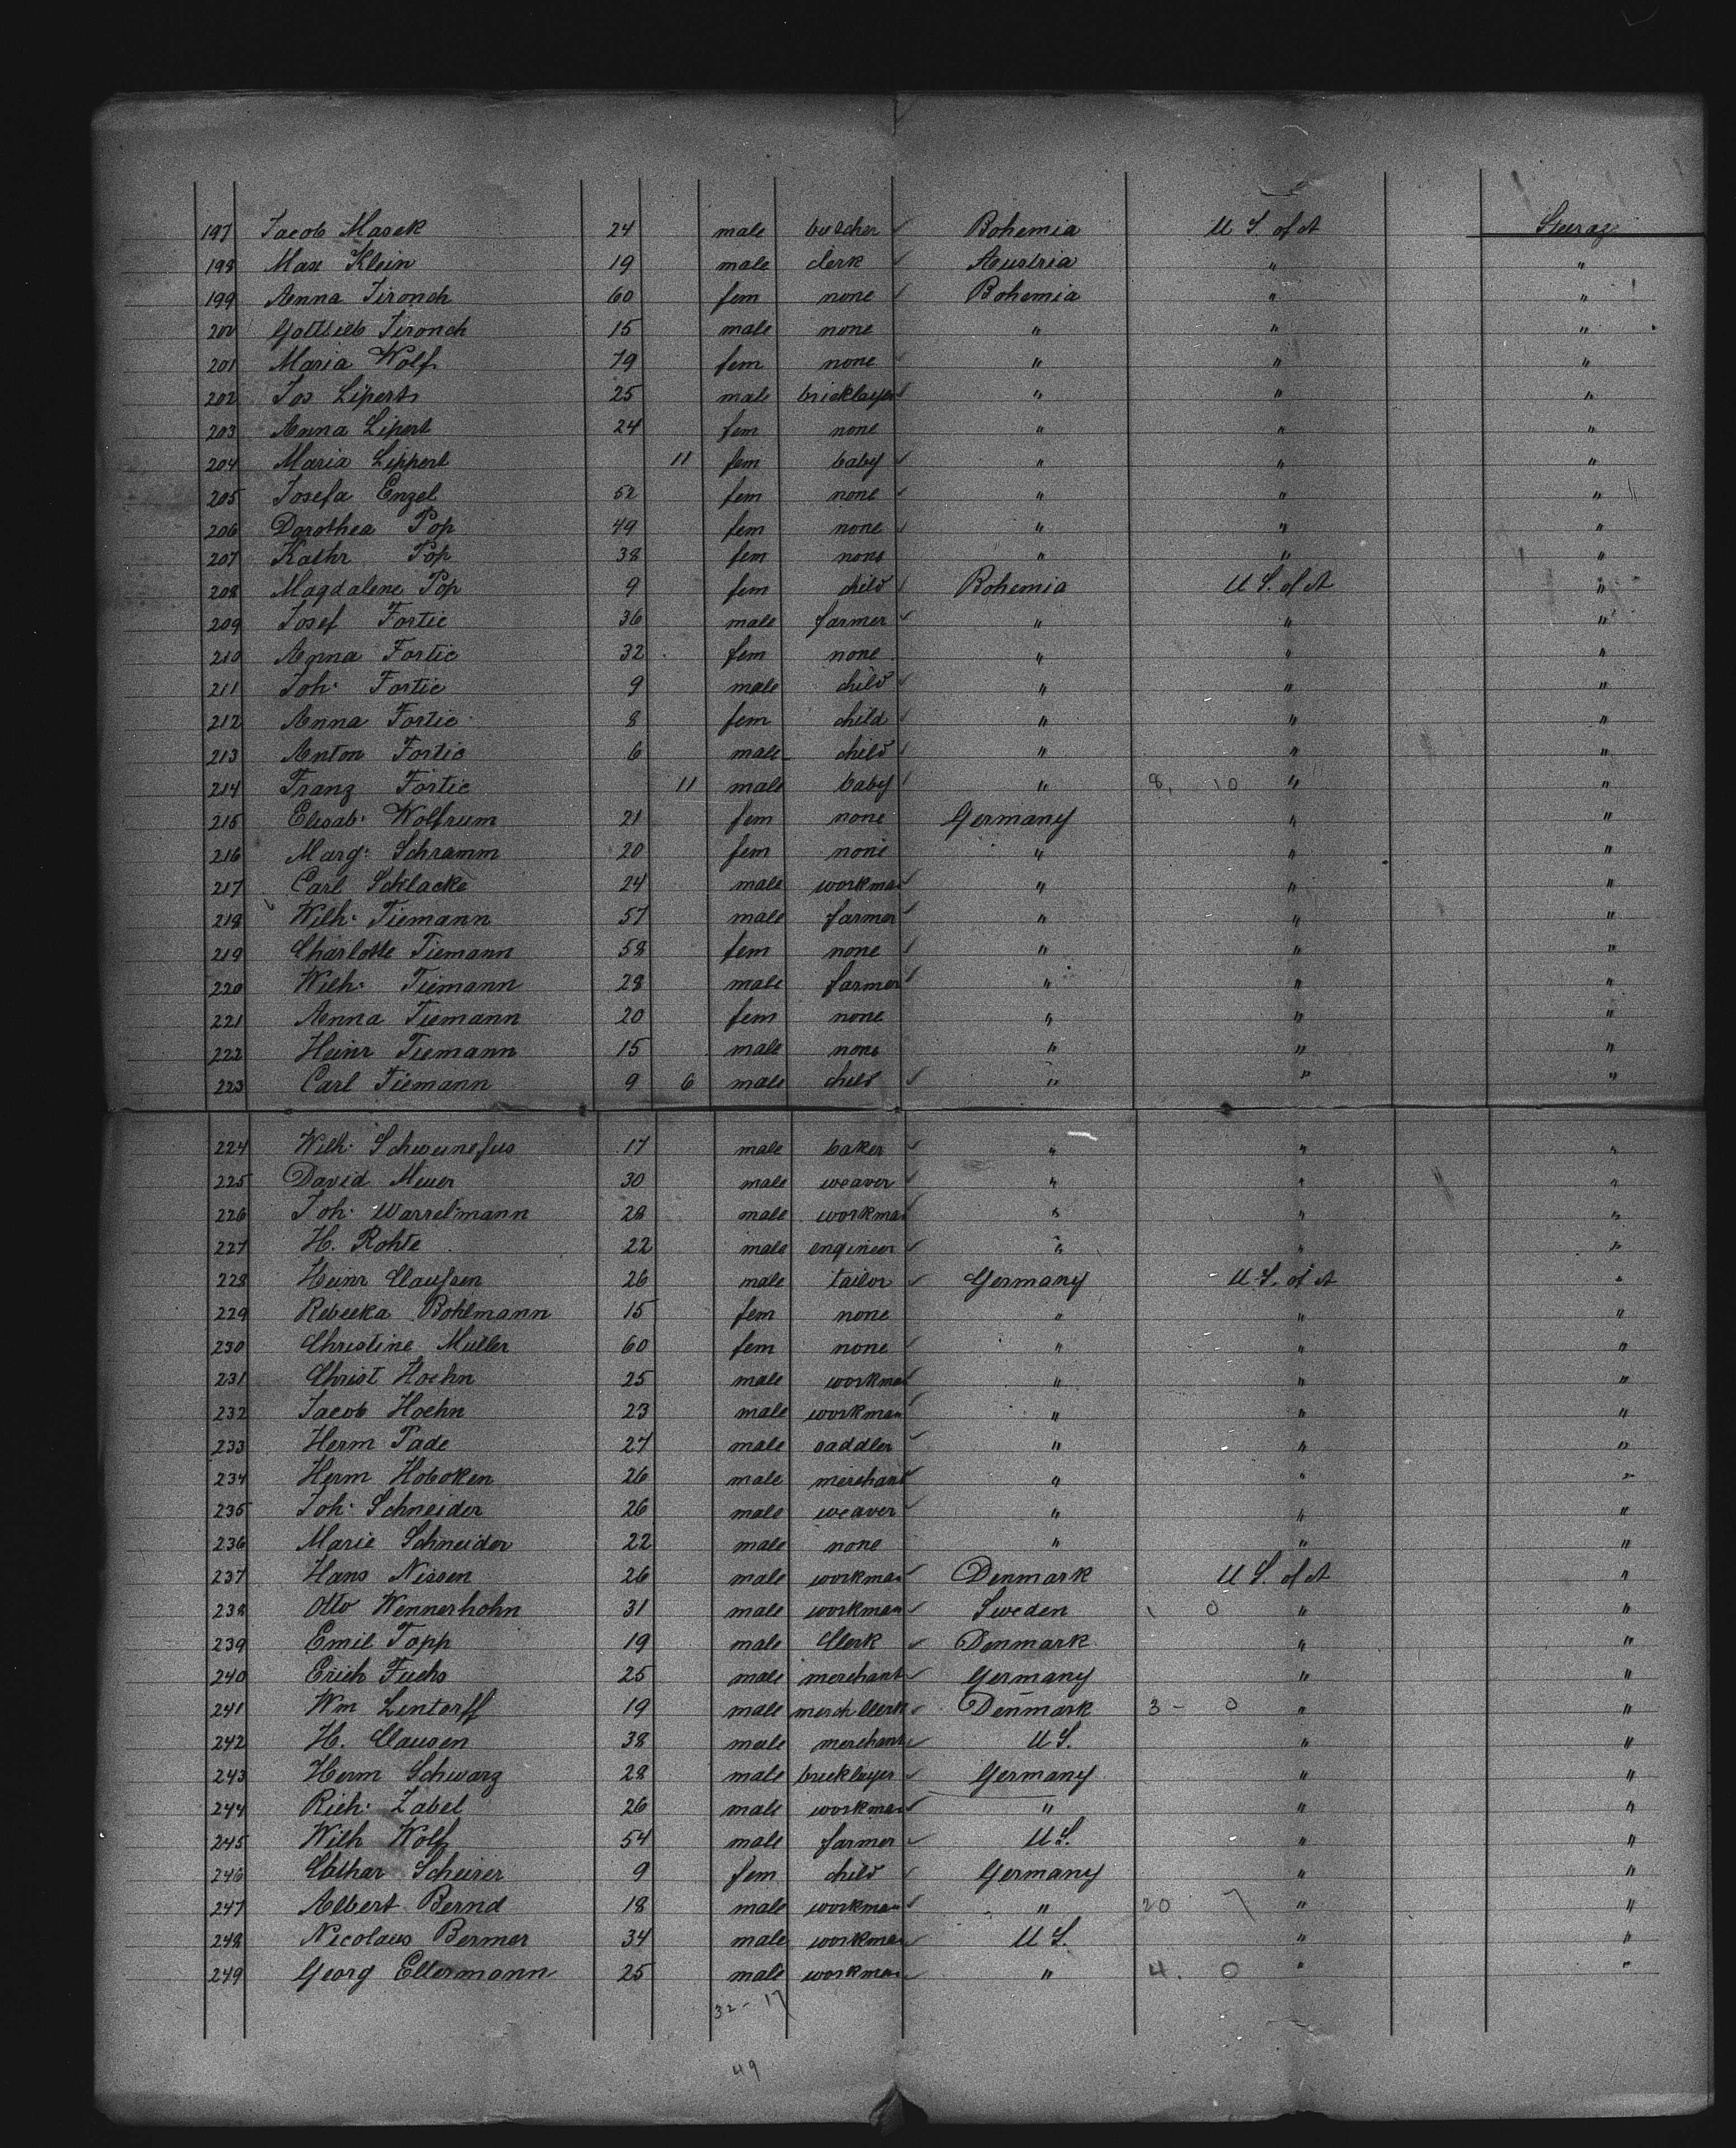 197 Jacob Masek 24 male butcher Bohemia U S. of A Steerag
198 Max Klein 19 male clerk Austria " "
199 Anna Tironch 60 fem none Bohemia " "
200 Gottlieb Tironch 15 male none " " "
201 Maria Wolf 19 fem none " " "
202 Jos Lipert 25 male bricklayer " " "
203 Anna Lipert 24 fem none " " "
204 Maria Lippert 11 fem baby " " "
205 Josefa Enzel 52 fem none " " "
206 Dorothea Pop 49 fem none " " "
207 Kathr Pop 38 fem none " " "
208 Magdalene Pop 9 fem child Bohemia U S. of A "
209 Josef Fortic 36 male farmer " " "
210 Anna Fortic 32 fem none " " "
211 Joh: Fortic 9 male child " " "
212 Anna Fortic 8 fem child " " "
213 Anton Fortic 6 male child " " "
214 Franz Fortic 11 male baby " 8, 10 " "
215 Elisab: Wolfrum 21 fem none Germany " "
216 Marg: Schramm 20 fem none " " "
217 Carl Schlacke 24 male workman " " "
218 Wilh: Tiemann 57 male farmer " " "
219 Charlotte Tiemann 58 fem none " " "
220 Wilh: Tiemann 28 male farmer " " "
221 Anna Tiemann 20 fem none " " "
222 Heinr Tiemann 15 male none " " "
223 Carl Tiemann 9 6 male child " " "
224 Wilh: Schweinefus 17 male baker " " "
225 David Meuer 30 male weaver " " "
226 Joh: Warrelmann 28 male workman " " "
227 H. Rohte 22 male engineer " " "
228 Heinr Claussen 26 male tailor Germany U S. of A "
229 Rebecka Bohlmann 15 fem none " " "
230 Christine Muller 60 fem none " " "
231 Christ Hoehn 25 male workman " " "
232 Jacob Hoehn 23 male workman " " "
233 Herm Pade 27 male saddler " " "
234 Herm Hoboken 26 male merchant " " "
235 Joh: Schneider 26 male weaver " " "
236 Marie Schneider 22 male none " " "
237 Hans Nissen 26 male workman Denmark U S. of A "
238 Otto Wennerhohn 31 male workman Sweden 1 0 " "
239 Emil Topp 19 male Clerk Denmark " "
240 Erich Fuchs 25 male merchant Germany " "
241 Wm Lentorff 19 male merch Clerk Denmark 3 - 0 " "
242 H. Clausen 38 male merchant U S. " "
243 Herm Schwarz 28 male bricklayer Germany " "
244 Rich: Zabel 26 male workman " " "
245 Wilh Wolf 54 male farmer U S. " "
246 Cathar Scheirer 9 fem child Germany " "
247 Albert Bernd 18 male workman " 20 7 " "
248 Nicolaus Bermer 34 male workman U S. " "
249 Georg Ellermann 25 male workman " 4. 0 " "
32 - 17
49